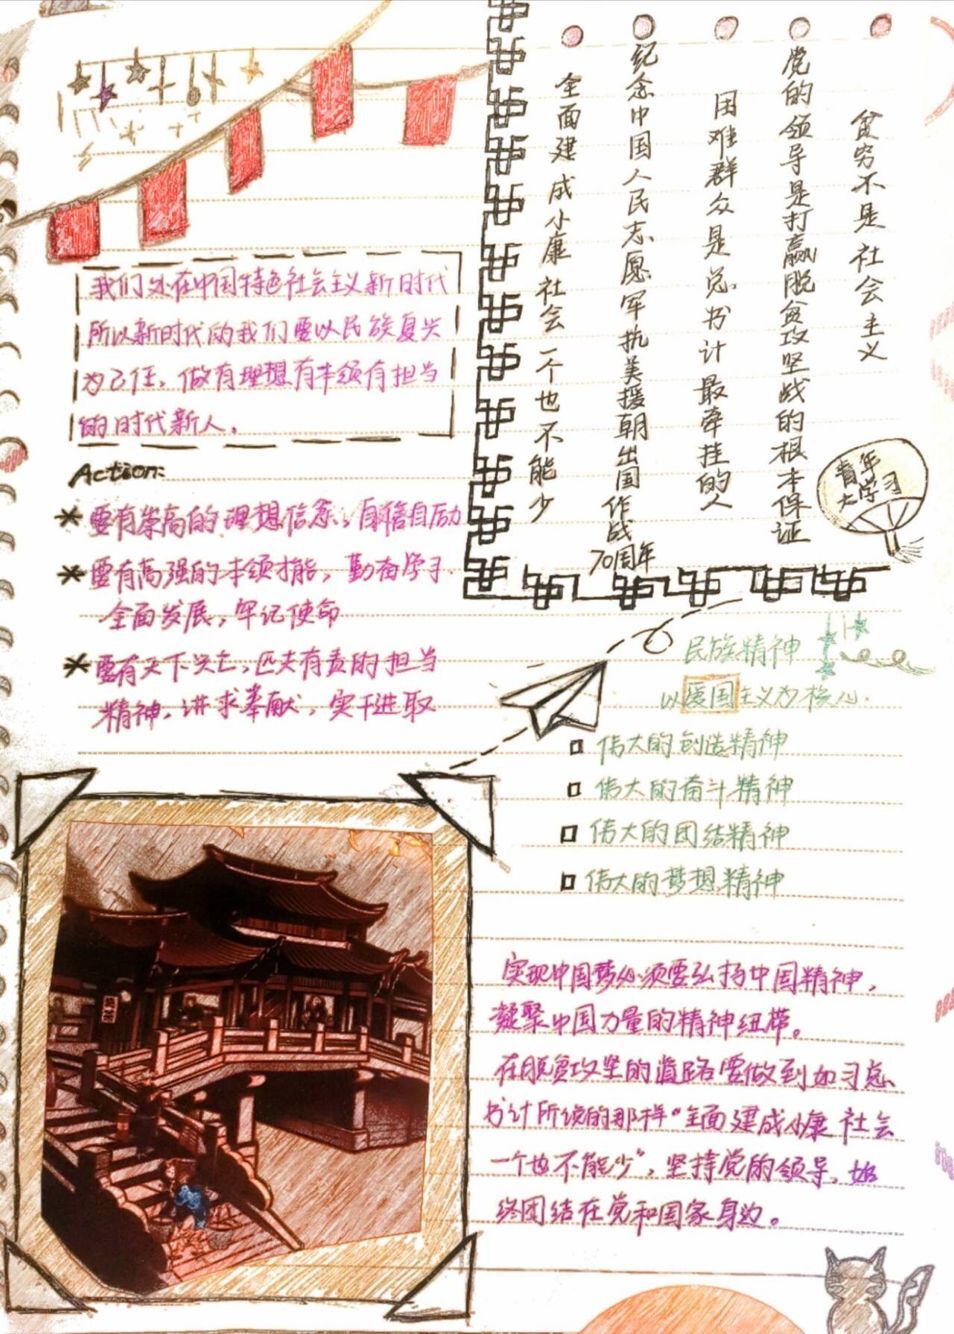 贫穷不是社会主义
党的领导是打赢脱贫攻坚战的根本保证
困难群众是总书计最牵挂的人
纪念中国人民志愿军抗美援朝出国作战70周年
全面建成小康社会一个也不能少
青年
大学习
我们处在中国特色社会主义新时代
所以新时代的我们要以民族复兴
为己任，做有理想有本领有担当
的时代新人。
Action:
*要有崇高的理想信念，自信自励
*要有高强的本领才能，勤奋学习
全面发展，牢记使命
*要有天下兴亡，匹夫有责的担当
精神，讲求奉献，实干进取
民族精神
以爱国主义为核心.
伟大的创造精神
伟大的奋斗精神
伟大的团结精神
伟大的梦想精神
实现中国梦必须要弘扬中国精神，
凝聚中国力量的精神纽带。
在脱贫攻坚的道路要做到如习总
书计所说的那样“全面建成小康社会
一个也不能少”，坚持党的领导，始
终团结在党和国家身边。